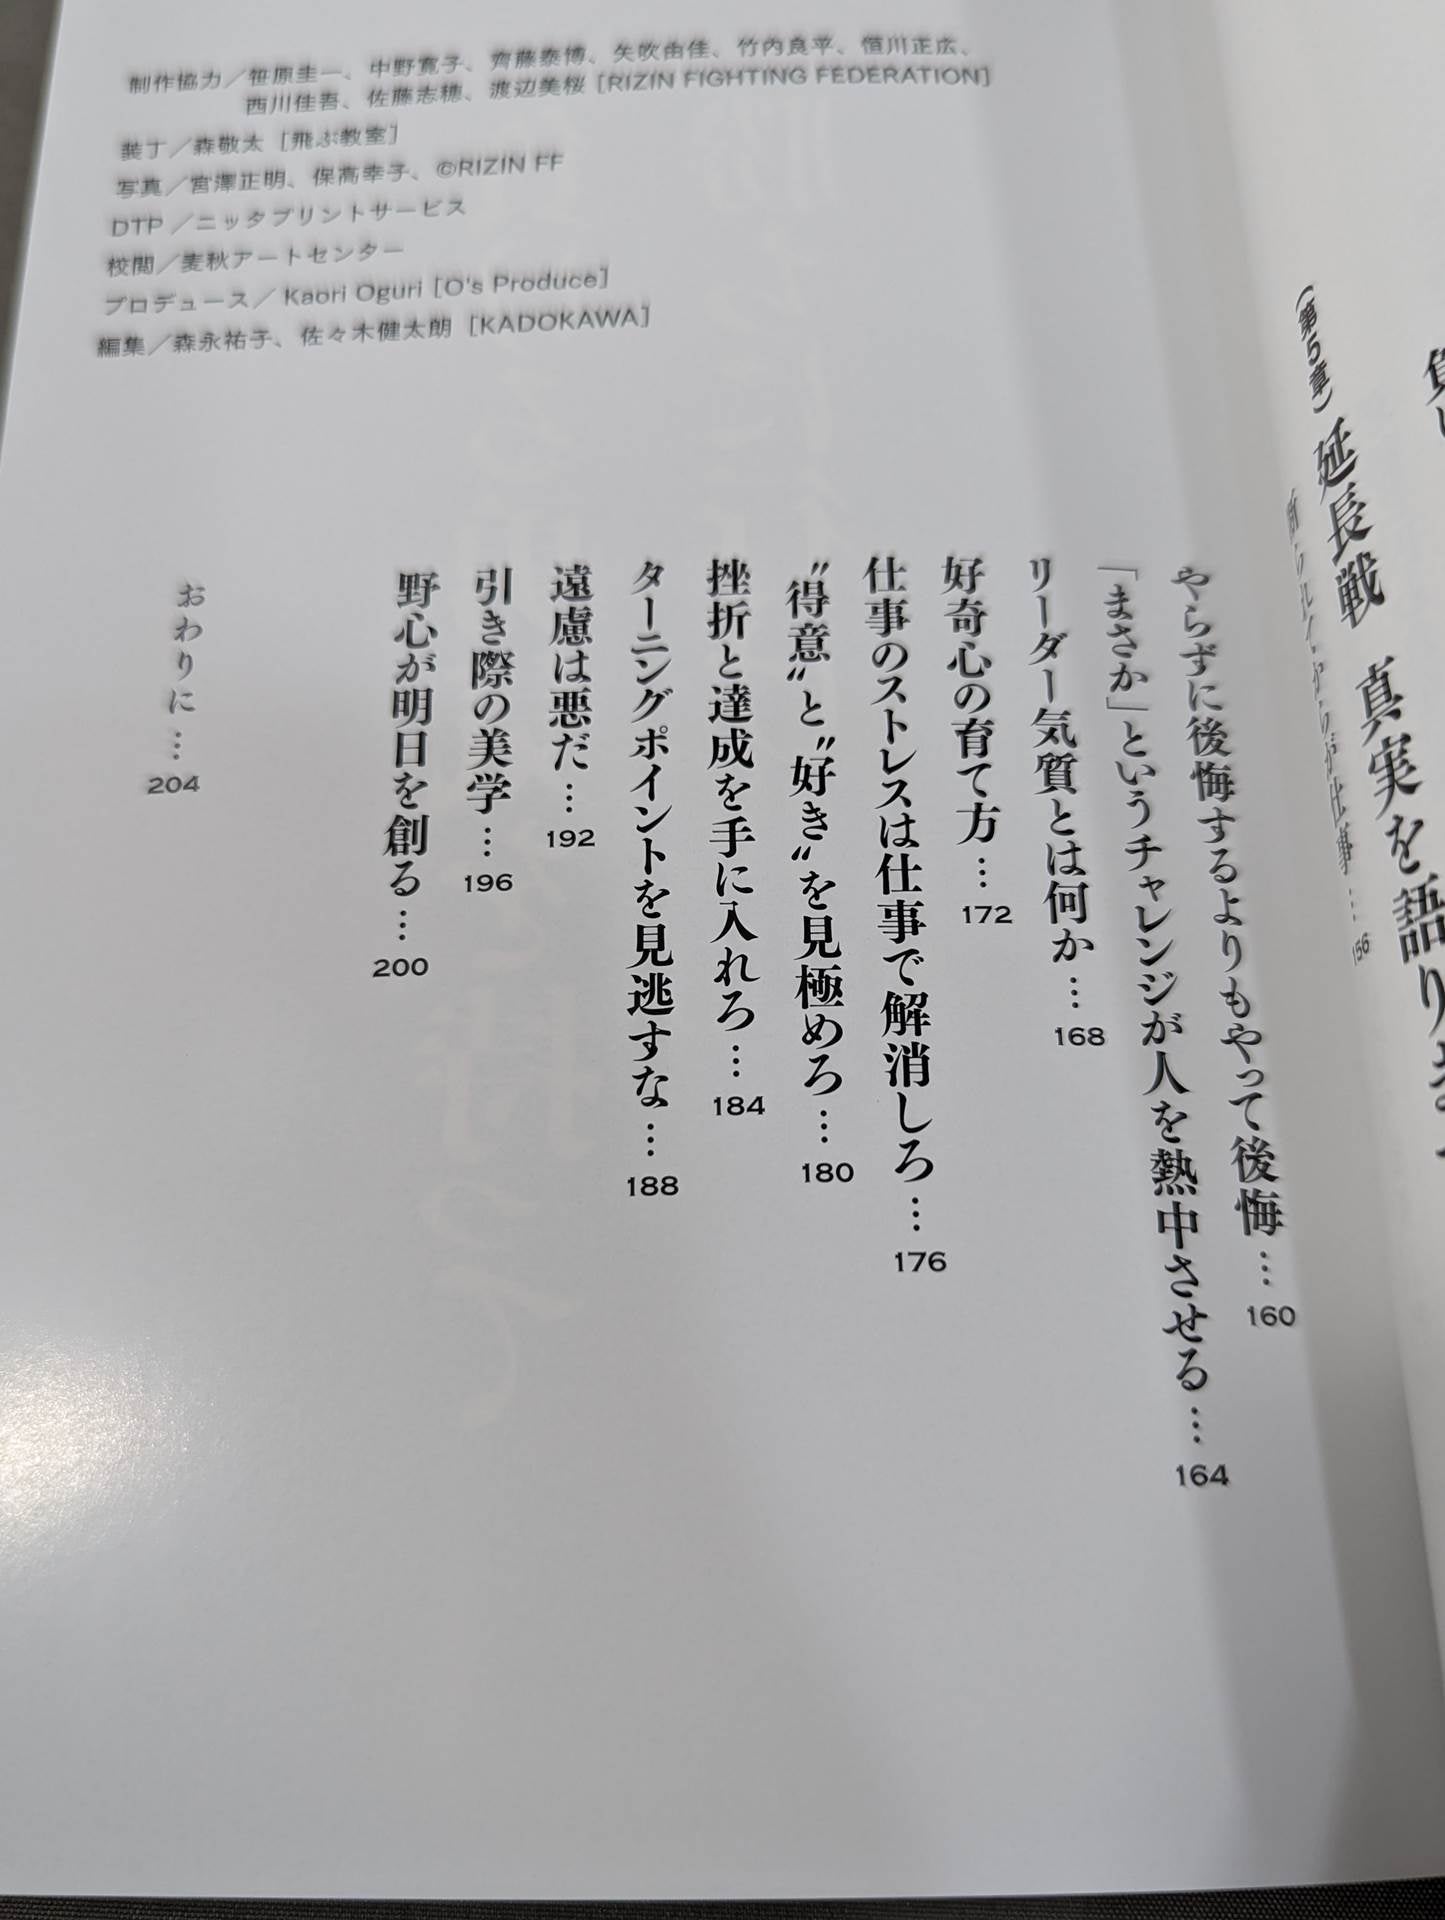 (第5章) 延長戦 真実を語り
断られてからが仕事…156
やらずに後悔するよりもやって後悔…160
「まさか」というチャレンジが人を熱中させる…164
リーダー気質とは何か…168
好奇心の育て方…172
仕事のストレスは仕事で解消しろ…176
〝得意〟と〝好き〟を見極めろ…180
挫折と達成を手に入れろ…184
ターニングポイントを見逃すな…188
遠慮は悪だ…192
引き際の美学…196
野心が明日を創る…200
おわりに…204
制作協力/笹原圭一、中野寛子、齊藤泰博、矢吹由佳、竹内良平、恒川正広、
西川佳吾、佐藤志穂、渡辺美桜 [RIZIN FIGHTING FEDERATION]
装丁/森敬太 [飛ぶ教室]
写真/宮澤正明、保高幸子、©RIZIN FF
DTP/ニッタプリントサービス
校閲/麦秋アートセンター
プロデュース/Kaori Oguri [O's Produce]
編集/森永祐子、佐々木健太朗 [KADOKAWA]